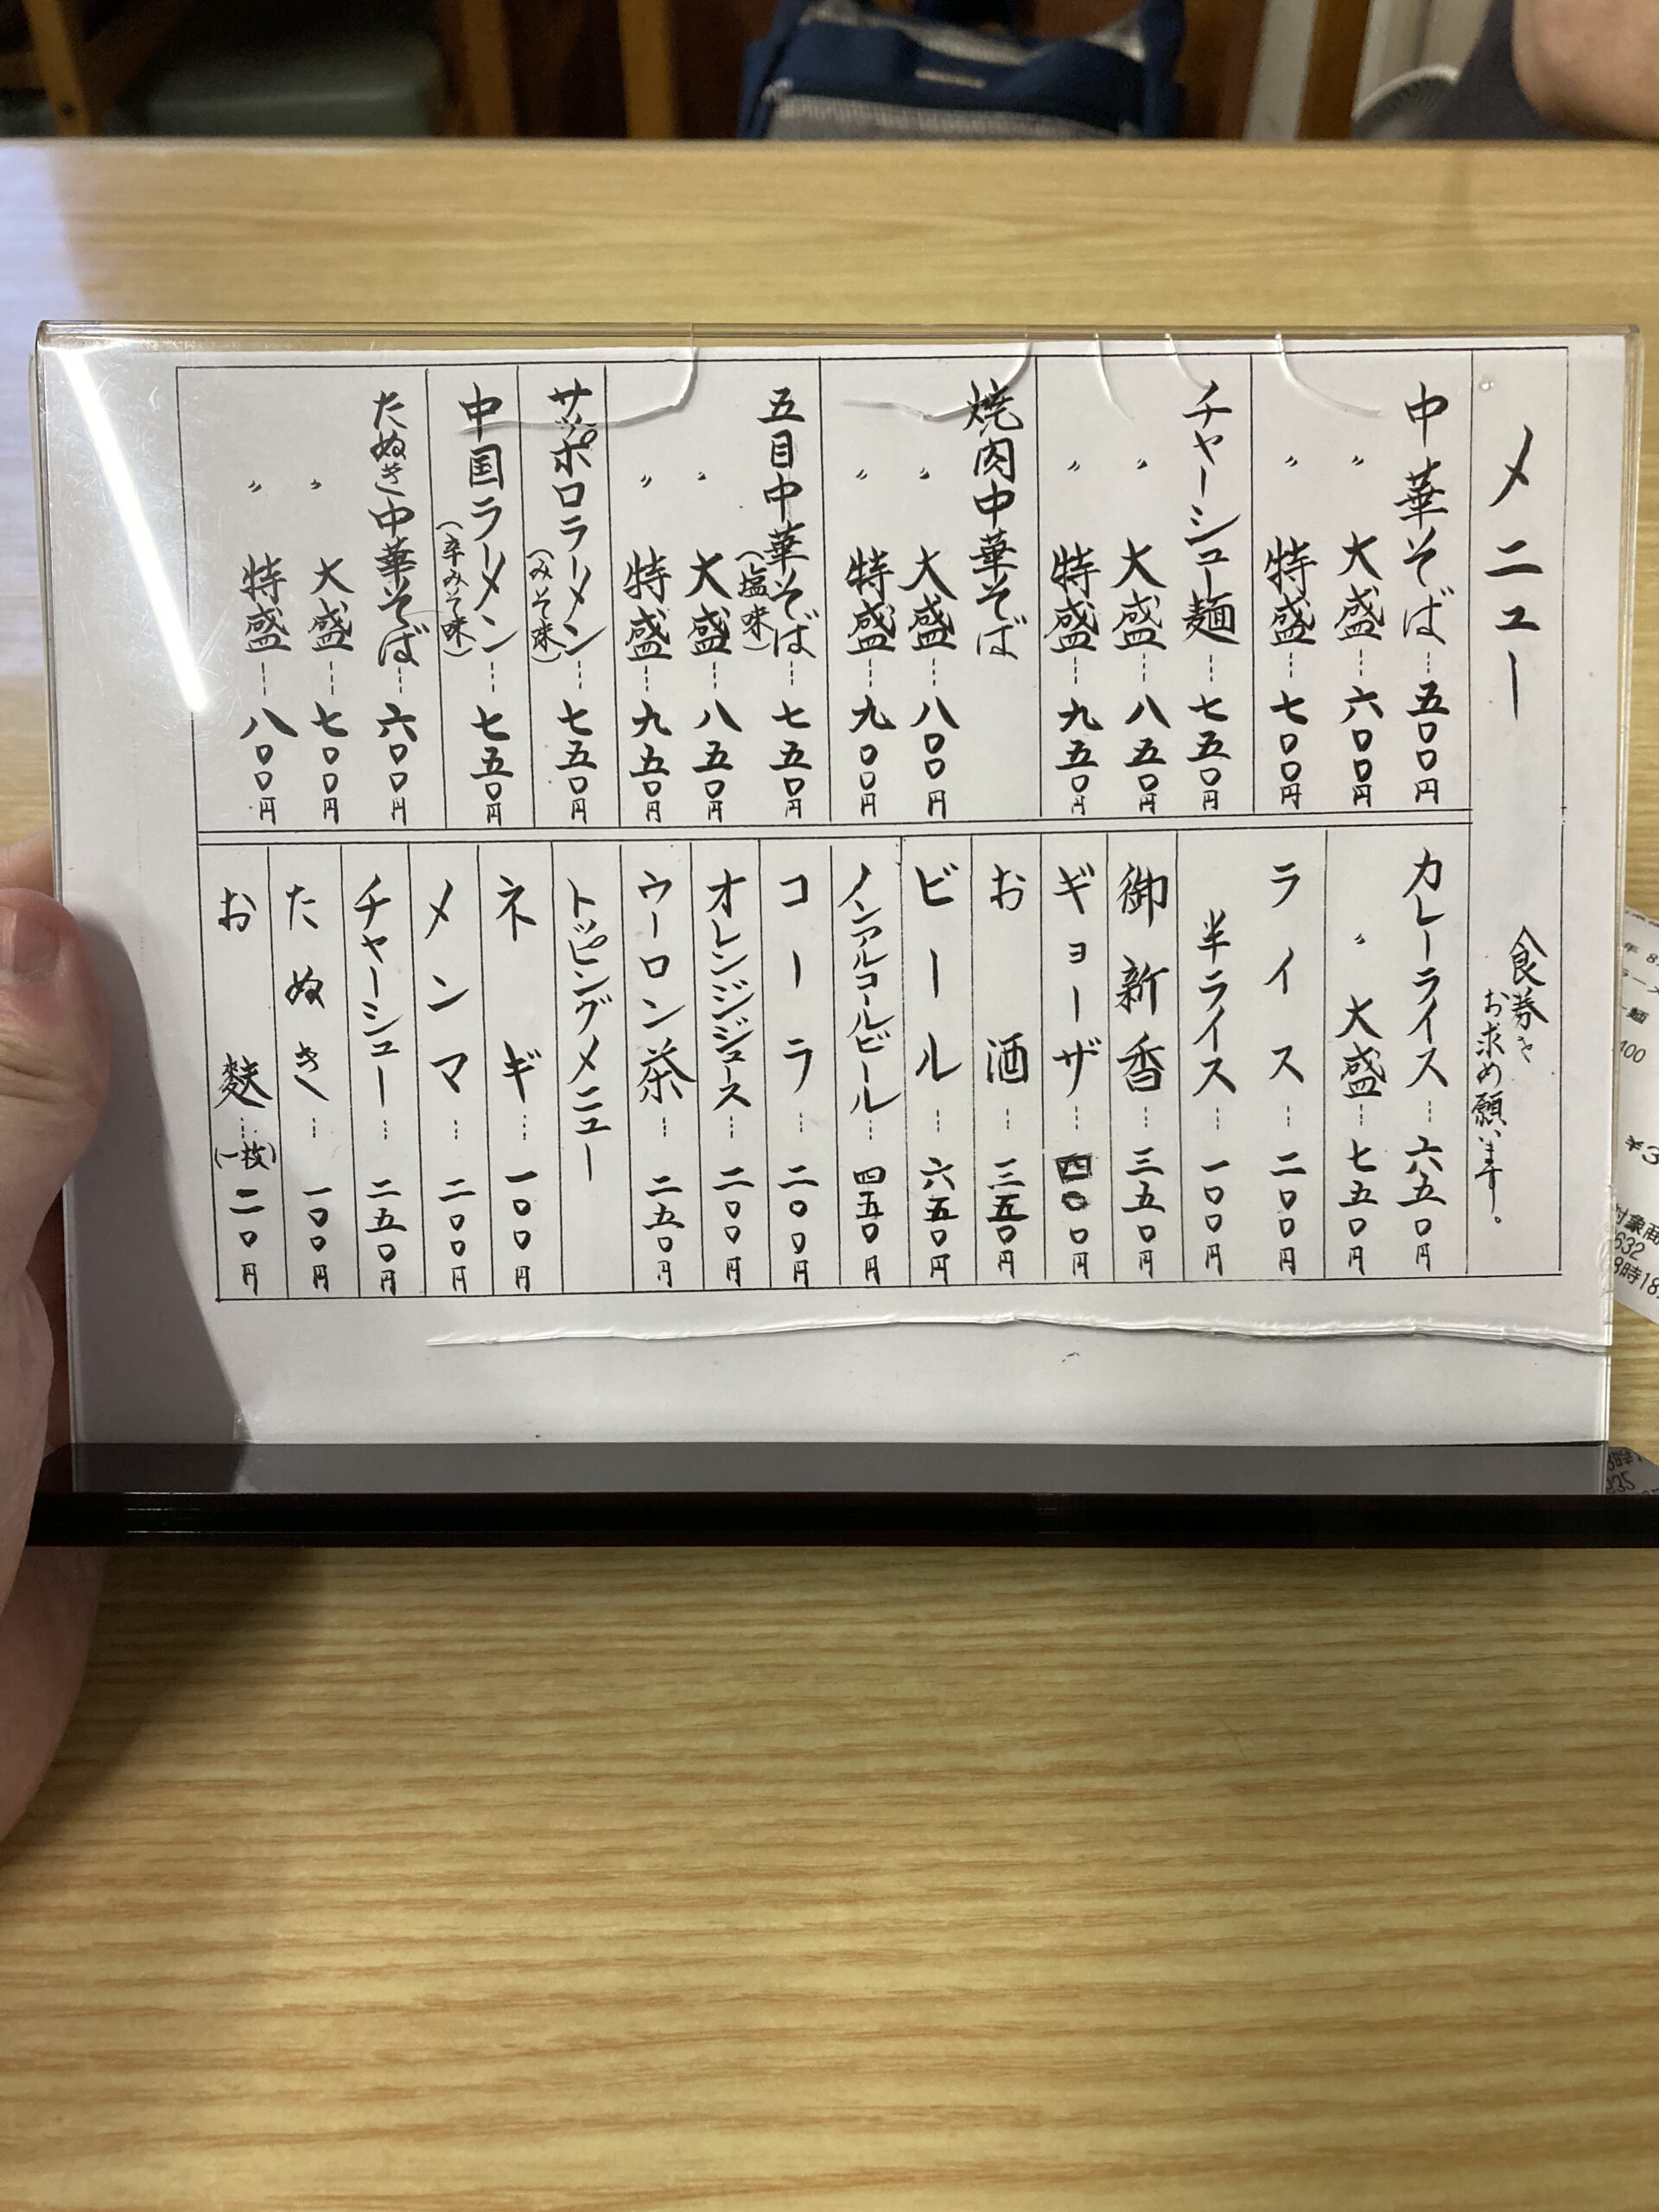 メニュー
食券を
お求め願います。
中華そば……五〇〇円
〃 大盛……六〇〇円
〃 特盛……七〇〇円
チャーシュー麺……七五〇円
〃 大盛……八五〇円
〃 特盛……九五〇円
焼肉中華そば
〃 大盛……八〇〇円
〃 特盛……九〇〇円
五目中華そば……七五〇円
(塩味)
〃 大盛……八五〇円
〃 特盛……九五〇円
サッポロラーメン……七五〇円
(みそ味)
中国ラーメン……七五〇円
(辛みそ味)
たぬき中華そば……六〇〇円
〃 大盛……七〇〇円
〃 特盛……八〇〇円
カレーライス……六五〇円
〃 大盛……七五〇円
ライス……二〇〇円
半ライス……一〇〇円
御新香……三五〇円
ギョーザ……四〇〇円
お酒……三五〇円
ビール……六五〇円
ノンアルコールビール……四五〇円
コーラ……二〇〇円
オレンジジュース……二〇〇円
ウーロン茶……二五〇円
トッピングメニュー
ネギ……一〇〇円
メンマ……二〇〇円
チャーシュー……二五〇円
たぬき……一〇〇円
お麩……(一枚)二〇円
麺
400
¥3
対象商
632
8時18
235